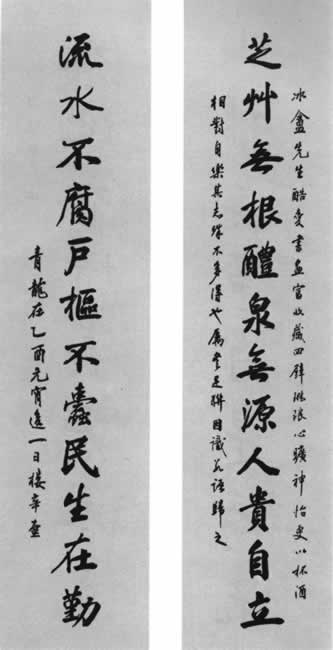 芝艸無根醴泉無源人貴自立
冰盦先生酷愛書畫富收藏四壁琳琅心曠神怡更以杯酒
相對自樂其志殊不多得也屬書是聯因識語歸之
流水不腐戶樞不蠹民生在勤
青龍在乙酉元宵後一日樓辛壺